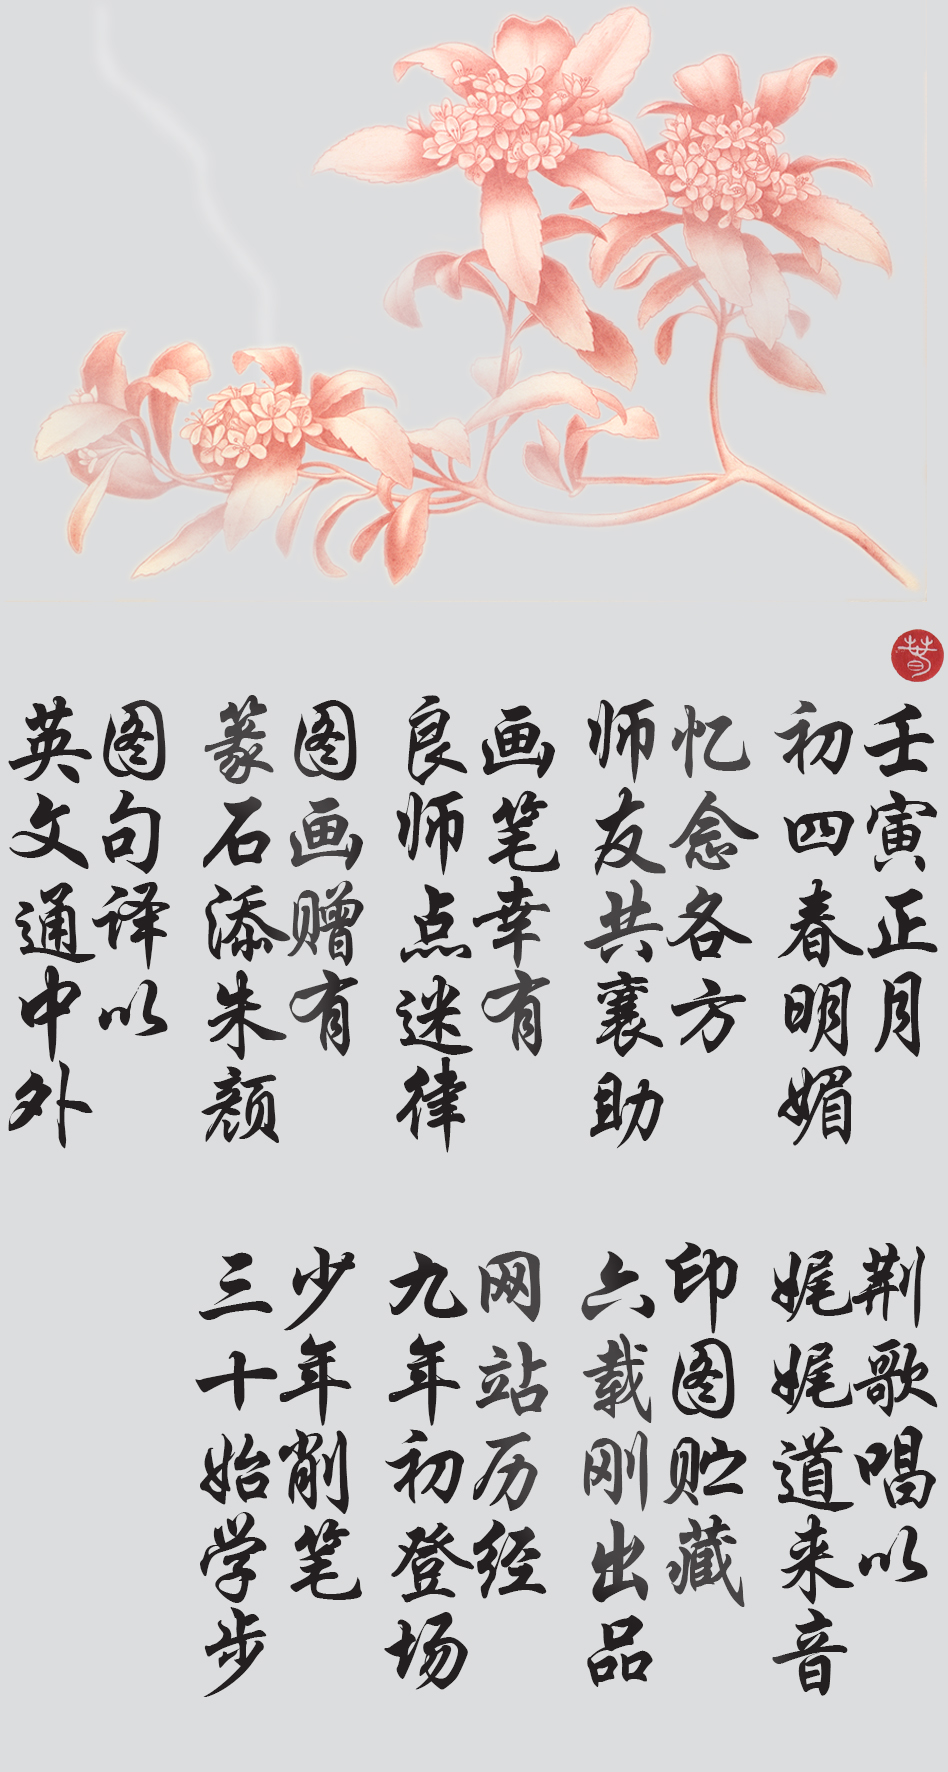 壬寅正月
初四春明媚
忆念各方
师友共襄助
画笔幸有
良师点迷律
图画赠有
篆石添朱颜
图句译以
英文通中外
荆歌唱以
娓娓道来音
印图贮藏
六载刚出品
网站历经
九年初登场
少年削笔
三十始学步